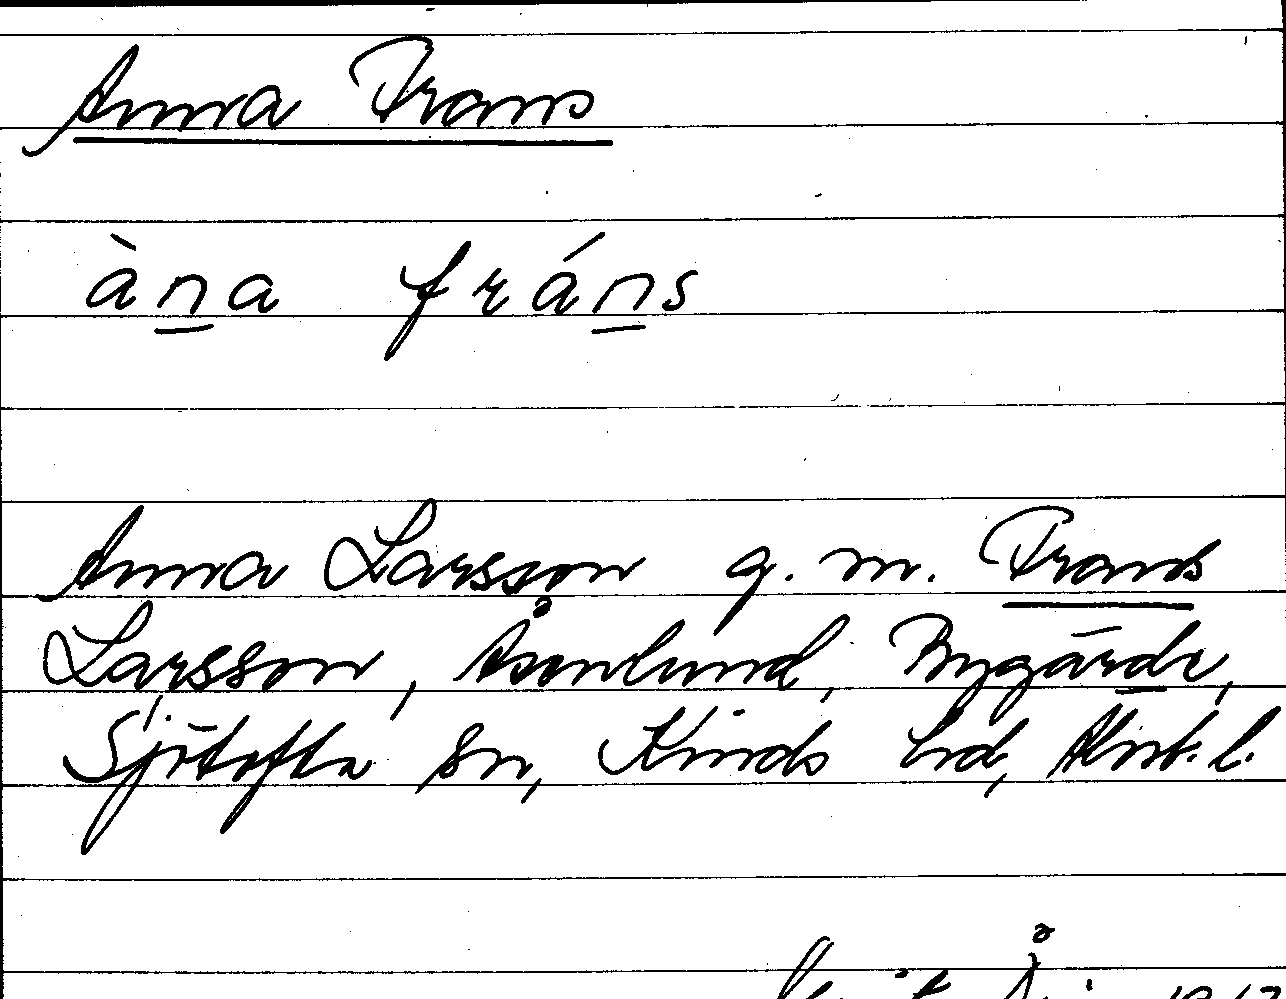 Anna Frans
àn̲a frán̲s
Anna Larsson g. m. Frans
Larsson, Åsenlund, Bygärde,
Sjötofta sn, Kinds hd, Älvsb. l.